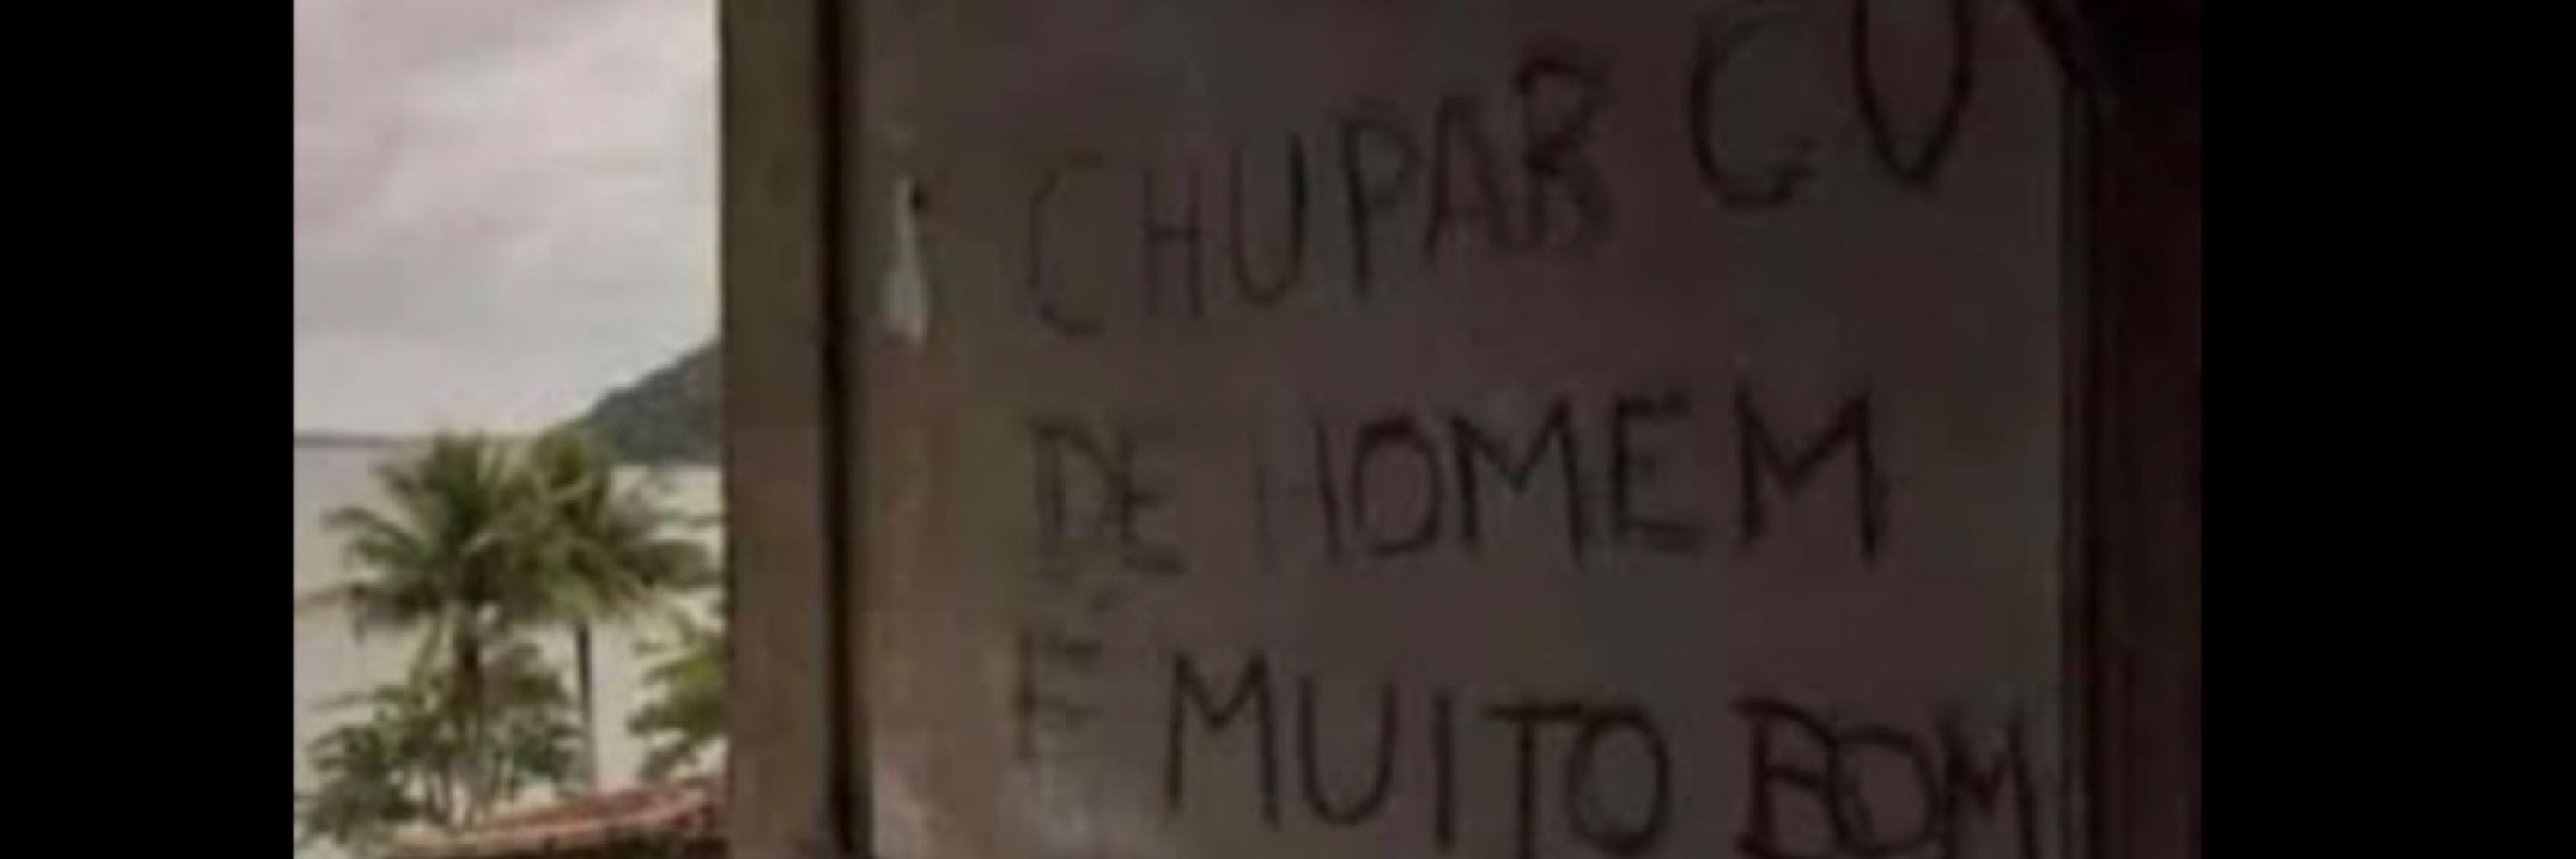 CHUPAR CU
DE HOMEM
É MUITO BOM